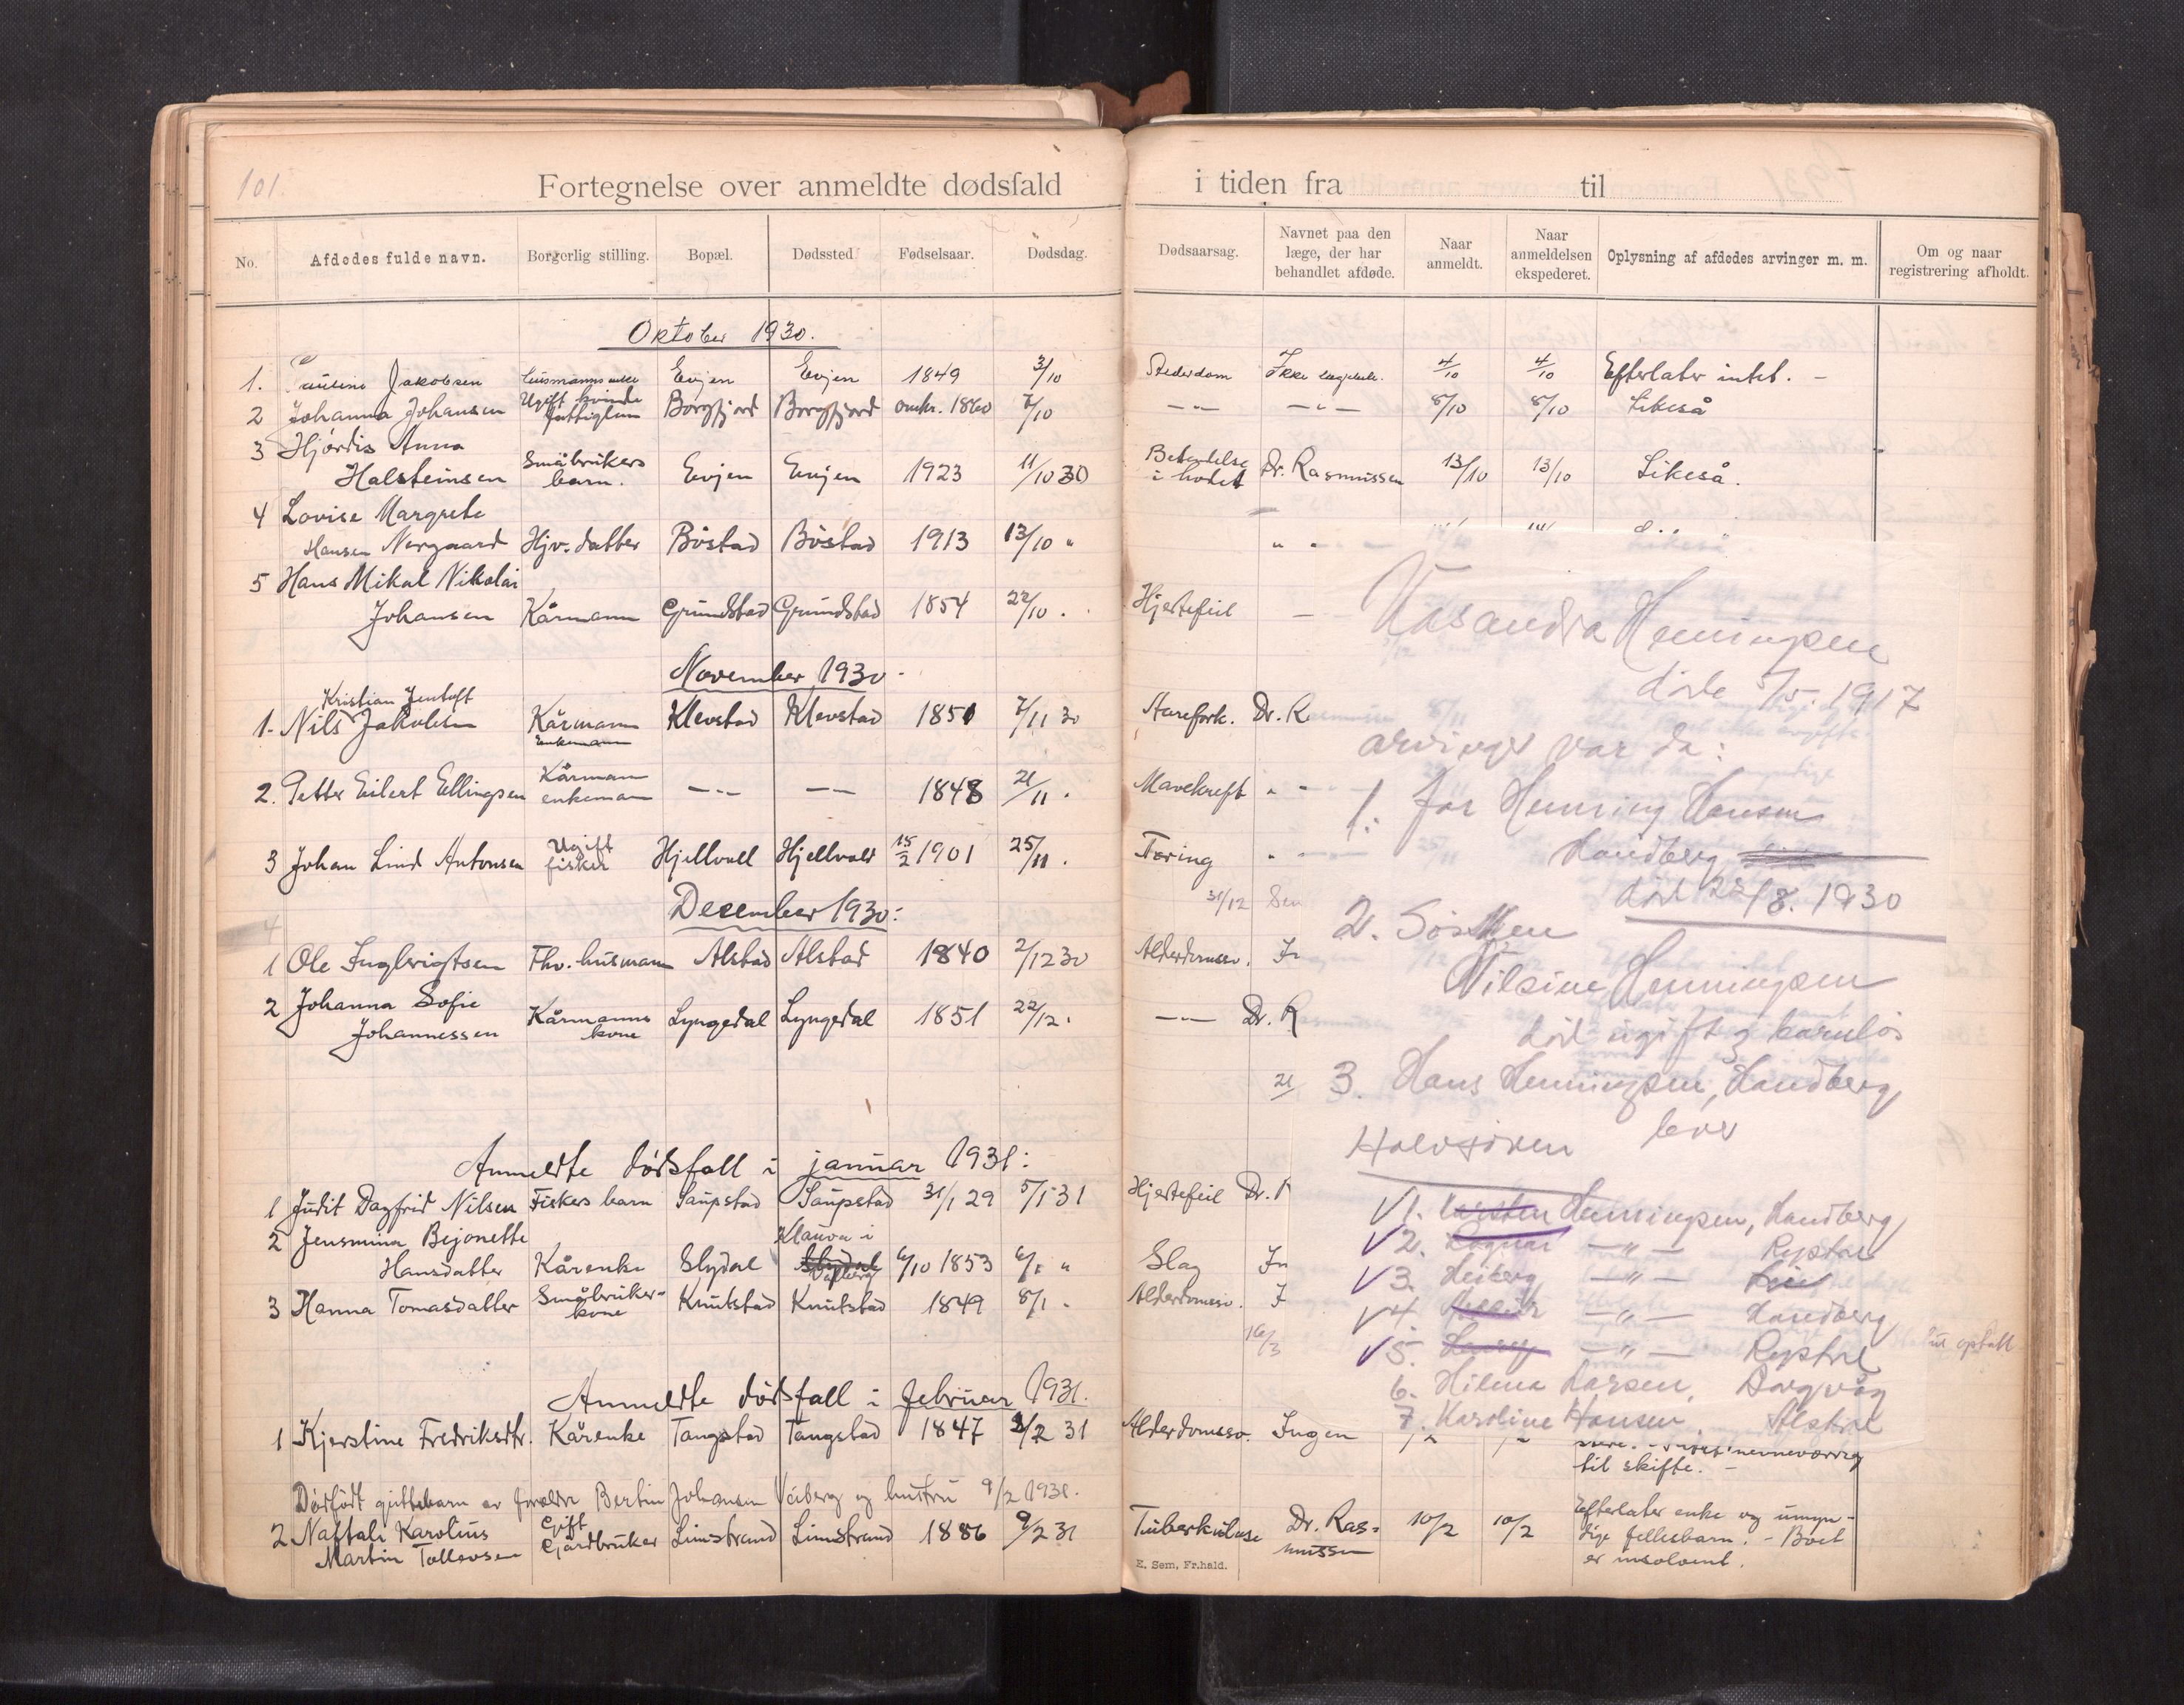 101.
Fortegnelse over anmeldte dødsfald i tiden fra til
No. Afdødes fulde navn. Borgerlig stilling. Bopæl. Dødssted Fødselsaar. Dødsdag. Dødsaarsag. Navnet paa den læge, der har behandlet afdøde. Naar anmeldt. Naar anmeldelsen ekspederet. Oplysning af afdødes arvinger m. m. Om og naar registrering afholdt.
Oktober 1930.
1. Jakobsen Evjen Evjen 1849 3/10 Alderdom Ikke 4/10 4/10 Efterlater intet. -
2 Johanna Johansen Ugift kvinde fattiglem Borgfjord Borgfjord omkr. 1860 7/10 -"- -"- 8/10 8/10 Likeså
3 Hjördis Anna
Halsteinsen Småbrukers barn. Evjen Evjen 1923 11/10 30 Betendelse i hodet Dr. Rasmussen 13/10 13/10 Likeså.
4 Lovise Margrete
Hansen Nergaard Hjv. datter Böstad Böstad 1913 13/10 "
5 Hans Mikal Nikolai
Johansen Kårmann Grundstad Grundstad 1854 22/10 . Hjertefeil
November 1930
Kristian Jentoft
1. Nils Jakobsen Kårmann Enkemann Klevstad Klevstad 1851 7/11 30 Aarefork. Dr. R
2. Petter Eilert Ellingsen Kårmann enkeman -"- -"- 1848 21/11 . Mavekreft " -
3 Johan Lind Antonsen Ugift fisker Hjellvoll Hjellvoll 15/2 1901 25/11 . Tæring " -
31/12 Sen
Desember 1930:
4
1 Ole Ingbrigtsen Fhv. husmann Alstad Alstad 1840 2/12 30 Alderdomssv. In
2 Johanna Sofie
Johannessen Kårmanns kone Lyngedal Lyngedal 1851 22/12 . -"- Dr. R
21/
Anmeldte dödsfall i januar 1931:
1 Judit Dagfrid Nilsen Fiskers barn Saupstad Saupstad 31/1 29 5/1 31 Hjertefeil Dr.
2 Jensmina Bejonette
Hansdatter Kårenke Slydal Klauva i 6/10 1853 6/1 " Slag In
3 Hanna Tomasdatter Småbruker-kone Knutstad Knutstad 1849 8/1 . Alderdomssv. I
16/3
Anmeldte dödsfall i februar 1931.
1 Kjerstine Fredriksdtr. Kårenke Tangstad Tangstad 1847 2/2 31 Alderdomssv. Ingen
nevneværdig
til skifte. -
Dödfödt guttebarn av foreldre Bertin Johansen Veiberg og hustru 9/2 1931.
2 Naftali Karolius
Martin Tollevsen Gift Gårdbruker Limstrand Limstrand 1886 9/2 31 Tuberkulose Dr. Rasmussen 10/2 10/2 Efterlater enke og umyn-
dige fellesbarn. - Boet
er insolvent.
E. Sem, Fr.hald.
Kasandra Henningsen
döde 5/5. 1917
arvinger var da:
1. far Henning Hansen
Handberg
död 22/8. 1930
2. Sösken
Nilsine Henningsen
död ugift og barnlös
3. Hans Henningsen, Handberg
lever
Halvsösken
1. Karsten Henningsen, Handberg
2. Ragnar -"- Repstad
3. Heiberg -"-
4. -"- Handberg
5. -"- Repstad
6. Hilma Larsen, Borgvåg
7. Karoline Hansen Alstad